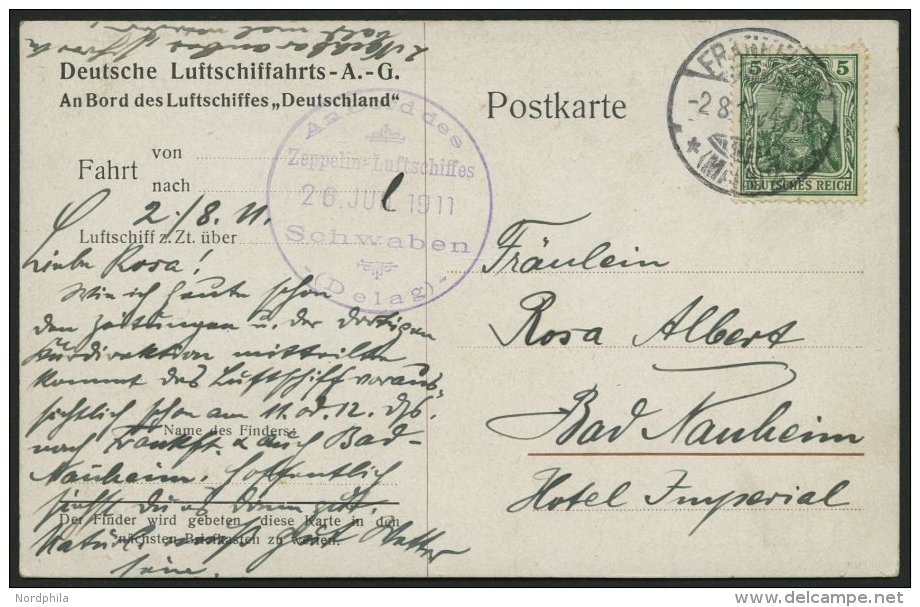 Deutsche Luftschiffahrts-A.-G.
An Bord des Luftschiffes „Deutschland“
Postkarte
Fahrt von
nach
Luftschiff z. Zt. über
An Bord des
Zeppelin-Luftschiffes
26. JUL 1911
Schwaben
(Delag)
FRANKFURT
-2 8 11
(MAIN)
5 5
DEUTSCHES REICH
2./8. 11.
Liebe Rosa!
Wie ich heute schon
den Zeitungen u. der dortigen
Kurdirektion mitteilte
kommt das Luftschiff voraus-
sichtlich schon am 11. od. 12. ds.
Name des Finders:
nach Frankft. & auch Bad-
Nauheim. Hoffentlich
siehst du es dann gut.
Der Finder wird gebeten, diese Karte in den
nächsten Briefkasten zu werfen.
Natürl. muß gut Wetter
sein.
Fräulein
Rosa Albert
Bad Nauheim
Hotel Imperial
Nordphila
www.delcampe.net